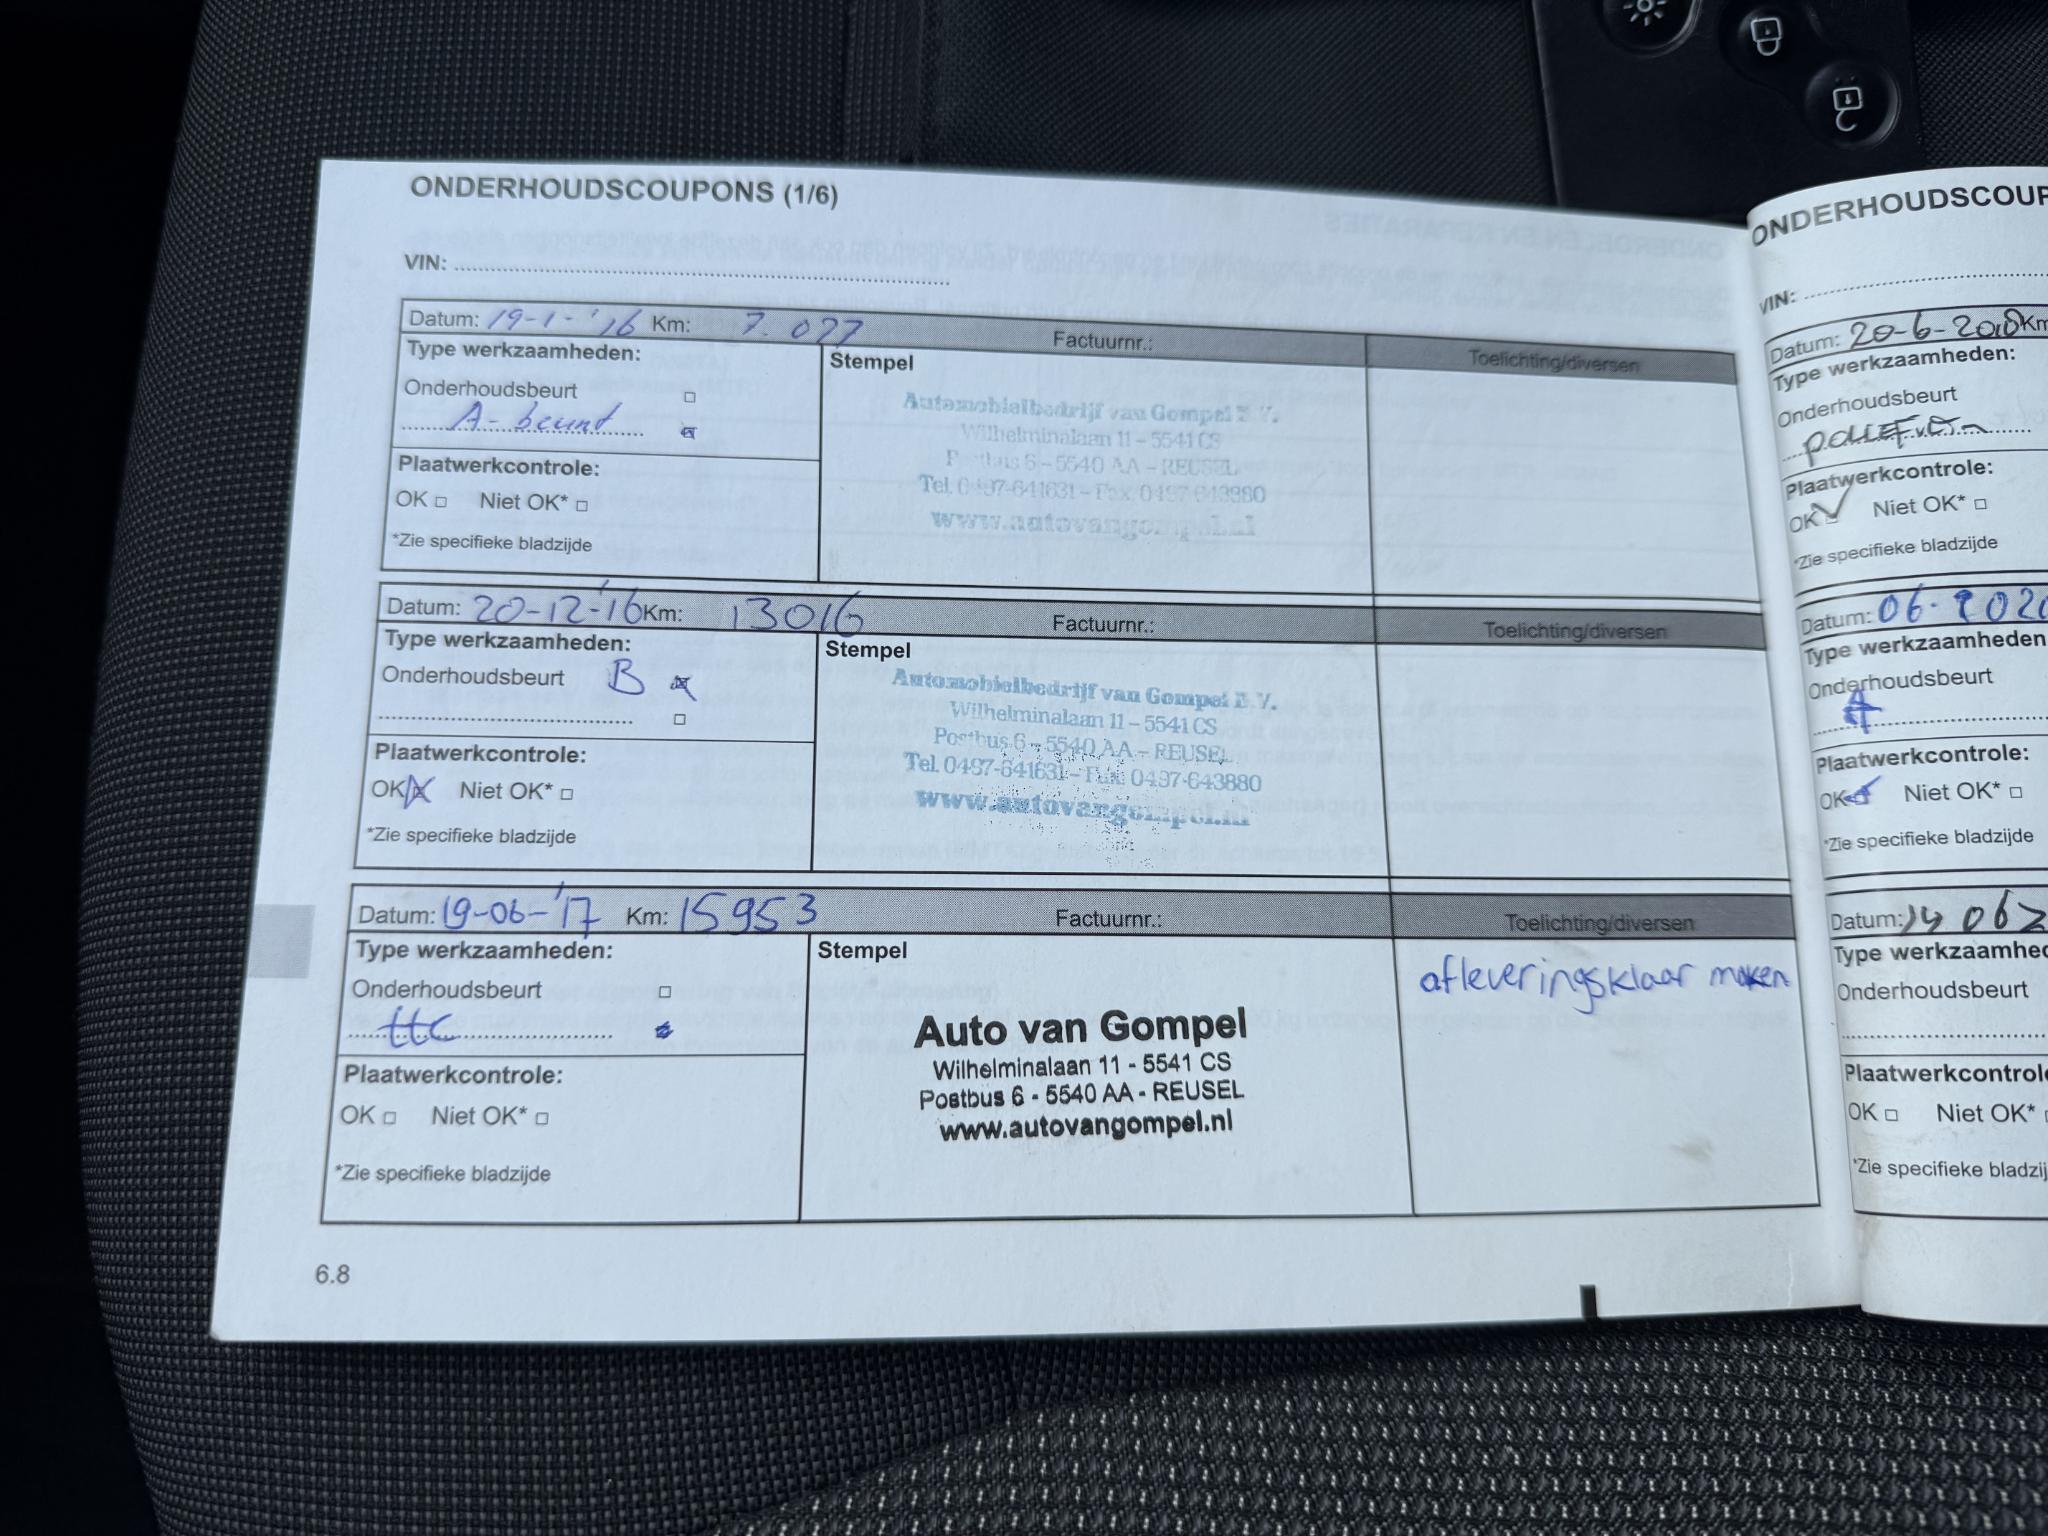 ONDERHOUDSCOUPONS (1/6)
VIN:
Datum: 19-1-'16 Km: 7.077 Factuurnr.: Toelichting/diversen
Type werkzaamheden:
Stempel
Onderhoudsbeurt
A-beurt
Plaatwerkcontrole:
OK Niet OK*
*Zie specifieke bladzijde
Automobielbedrijf van Gompel B.V.
Wilhelminalaan 11 – 5541 CS
Postbus 6 – 5540 AA – REUSEL
Tel. 0497-641631 – Fax. 0497-643880
www.autovangompel.nl
Datum: 20-12-'16 Km: 13016 Factuurnr.: Toelichting/diversen
Type werkzaamheden:
Stempel
Onderhoudsbeurt B
Plaatwerkcontrole:
OK Niet OK*
*Zie specifieke bladzijde
Automobielbedrijf van Gompel B.V.
Wilhelminalaan 11 – 5541 CS
Postbus 6 – 5540 AA – REUSEL
Tel. 0497-641631 – Fax. 0497-643880
www.autovangompel.nl
Datum: 19-06-'17 Km: 15953 Factuurnr.: Toelichting/diversen
Type werkzaamheden:
Stempel
Onderhoudsbeurt
ttc
Plaatwerkcontrole:
OK Niet OK*
*Zie specifieke bladzijde
Auto van Gompel
Wilhelminalaan 11 - 5541 CS
Postbus 6 - 5540 AA - REUSEL
www.autovangompel.nl
afleveringsklaar maken
6.8
ONDERHOUDSCOUP
VIN:
Datum: 20-6-2018 Km
Type werkzaamheden:
Onderhoudsbeurt
Plaatwerkcontrole:
OK Niet OK*
*Zie specifieke bladzijde
Datum: 06-
Type werkzaamheden
Onderhoudsbeurt
A
Plaatwerkcontrole:
OK Niet OK*
*Zie specifieke bladzijde
Datum: 14 06 2
Type werkzaamhe
Onderhoudsbeurt
Plaatwerkcontrol
OK Niet OK*
*Zie specifieke bladzij